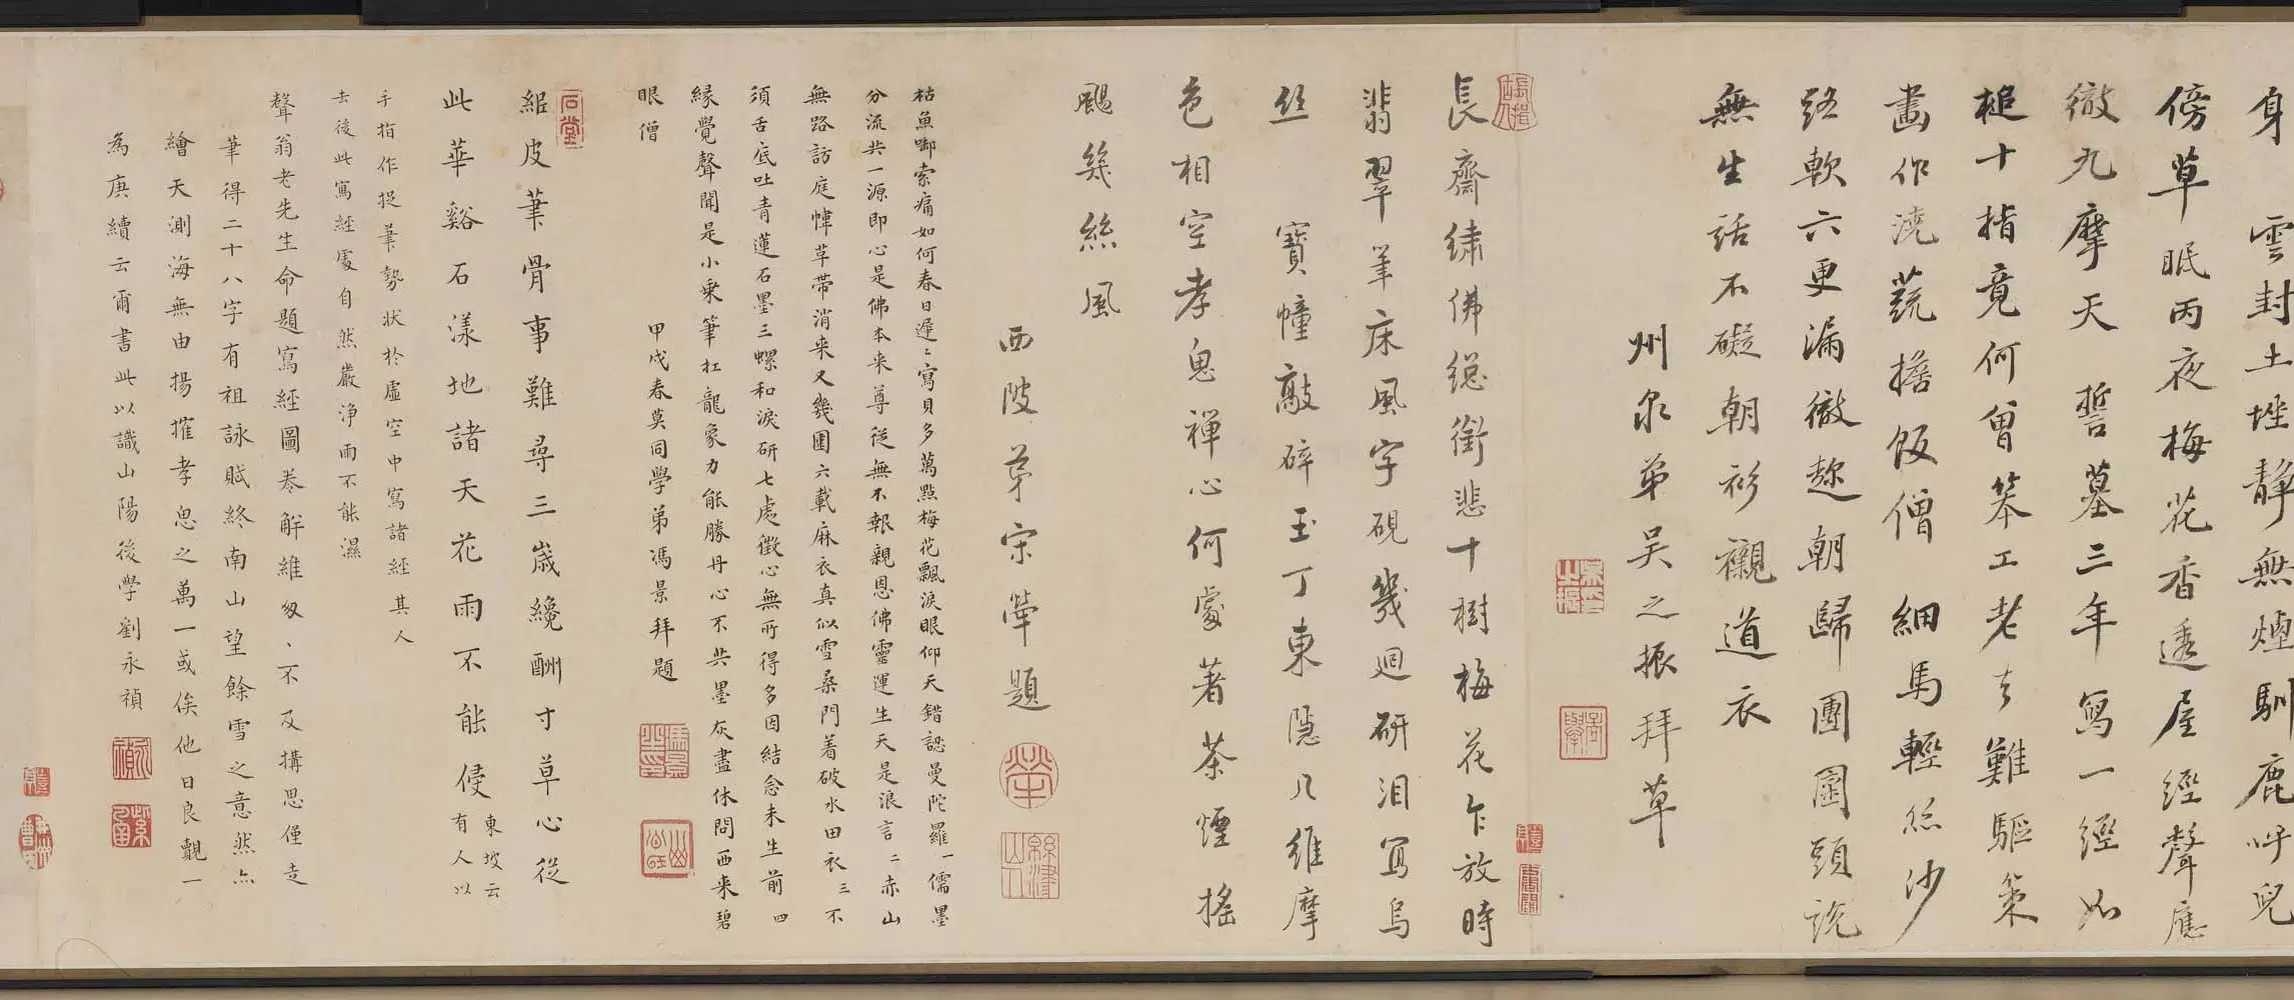 身 雲封土垤靜無煙馴鹿呼兒
傍草眠丙夜梅花香透屋經聲應
徹九摩天 誓墓三年寫一經如
槌十指竟何曾笨工老去難驅策
畫作澆蔬擔飯僧 細馬輕絲沙
路軟六更漏徹趁朝歸團圞頭說
無生話不礙朝衫襯道衣
州泉弟吳之振拜草
長齋繡佛總銜悲十樹梅花乍放時
翡翠筆床風字硯幾迴研淚寫烏
絲 寶幢敲碎玉丁東隱几維摩
色相空孝思禪心何處著茶煙搖
颺幾絲風
西陂弟宋犖題
枯魚啣索痛如何春日遲遲寫貝多萬點梅花飄淚眼仰天錯認曼陀羅一儒墨
分流共一源即心是佛本來尊從無不報親恩佛靈運生天是浪言二赤山
無路訪庭幃草帶消來又幾圍六載麻衣真似雪桑門着破水田衣三不
須舌底吐青蓮石墨三螺和淚研七處徵心無所得多因結念未生前四
緣覺聲聞是小乘筆扛龍象力能勝丹心不共墨灰盡休問西來碧
眼僧 甲戌春莫同學弟馮景拜題
石堂
紙皮筆骨事難尋三歲纔酬寸草心從
此華谿石漾地諸天花雨不能侵 東坡云有人以
手指作捉筆勢狀於虛空中寫諸經其人
去後此寫經處自然嚴淨雨不能濕
聲翁老先生命題寫經圖卷解維匆、不及搆思僅走
筆得二十八字有祖詠賦終南山望餘雪之意然亦
繪天測海無由揚搉孝思之萬一或俟他日良覿一
為賡續云爾書此以識山陽後學劉永禎